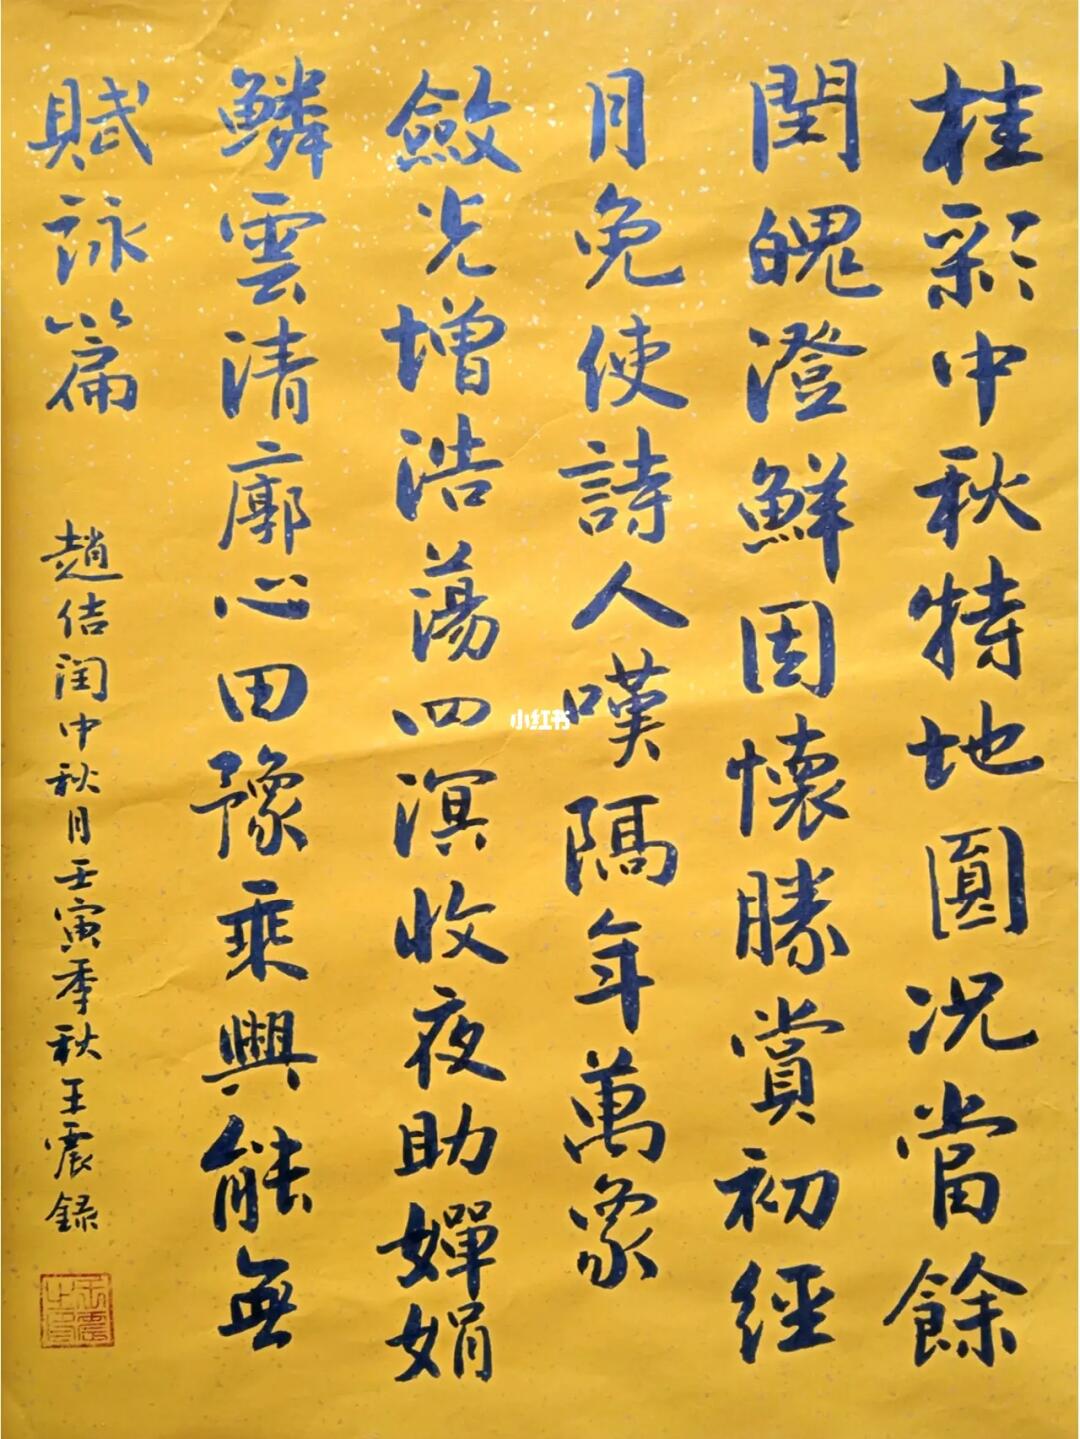 桂彩中秋特地圓况當餘
閏魄澄鮮因懷勝賞初經
月免使詩人嘆隔年萬象
斂光增浩蕩四溟收夜助嬋娟
鱗雲清廓心田豫乘興能無
賦詠篇
趙佶閏中秋月壬寅季秋王震録
小红书